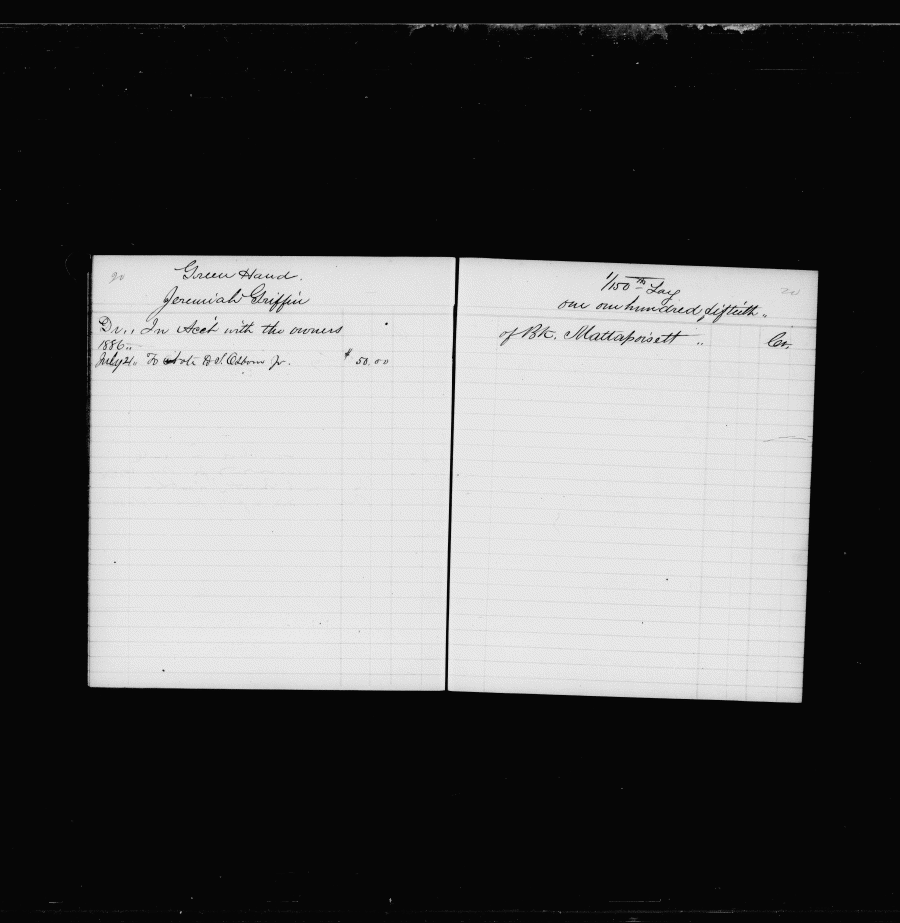 20
Green Hand.
Jeremiah Griffin
Dr., In Acc't with the owners
1886,,
July 21,, To Note A. S. Osborn Jr. $ 50.00
1/150 th Lay
20
one one hundred fiftieth,,
of Bk. Mattapoisett ,, Cr.